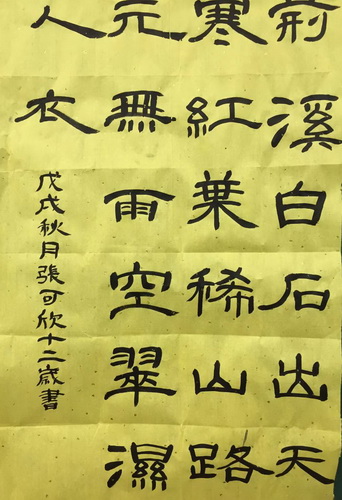 荊溪白石出天
寒紅葉稀山路
元無雨空翠濕
人衣
戊戌秋月張可欣十二歲書